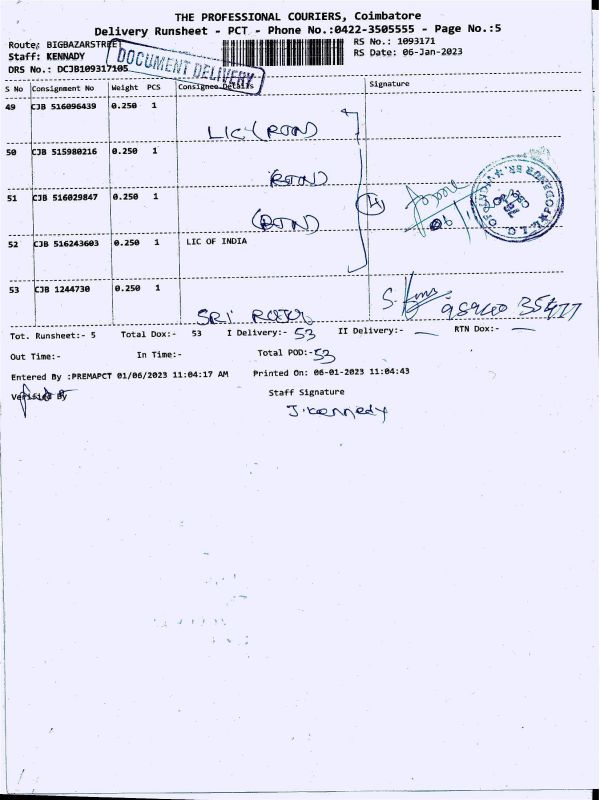 THE PROFESSIONAL COURIERS, Coimbatore
Delivery Runsheet - PCT - Phone No.:0422-3505555 - Page No.:5
Route: BIGBAZARSTREET
RS No.: 1093171
Staff: KENNADY
RS Date: 06-Jan-2023
DRS No.: DCJB109317105
DOCUMENT DELIVERY
S No Consignment No Weight PCS Consignee Details Signature
49 CJB 516096439 0.250 1
LIC (RTN)
50 CJB 515980216 0.250 1
(RTN)
51 CJB 516029847 0.250 1
(RTN)
4
52 CJB 516243603 0.250 1 LIC OF INDIA
53 CJB 1244730 0.250 1
SRI
Tot. Runsheet:- 5 Total Dox:- 53 I Delivery:- 53 II Delivery:- — RTN Dox:- —
Out Time:- In Time:- Total POD:- 53
Entered By :PREMAPCT 01/06/2023 11:04:17 AM Printed On: 06-01-2023 11:04:43
Verified By Staff Signature
J. Kennedy